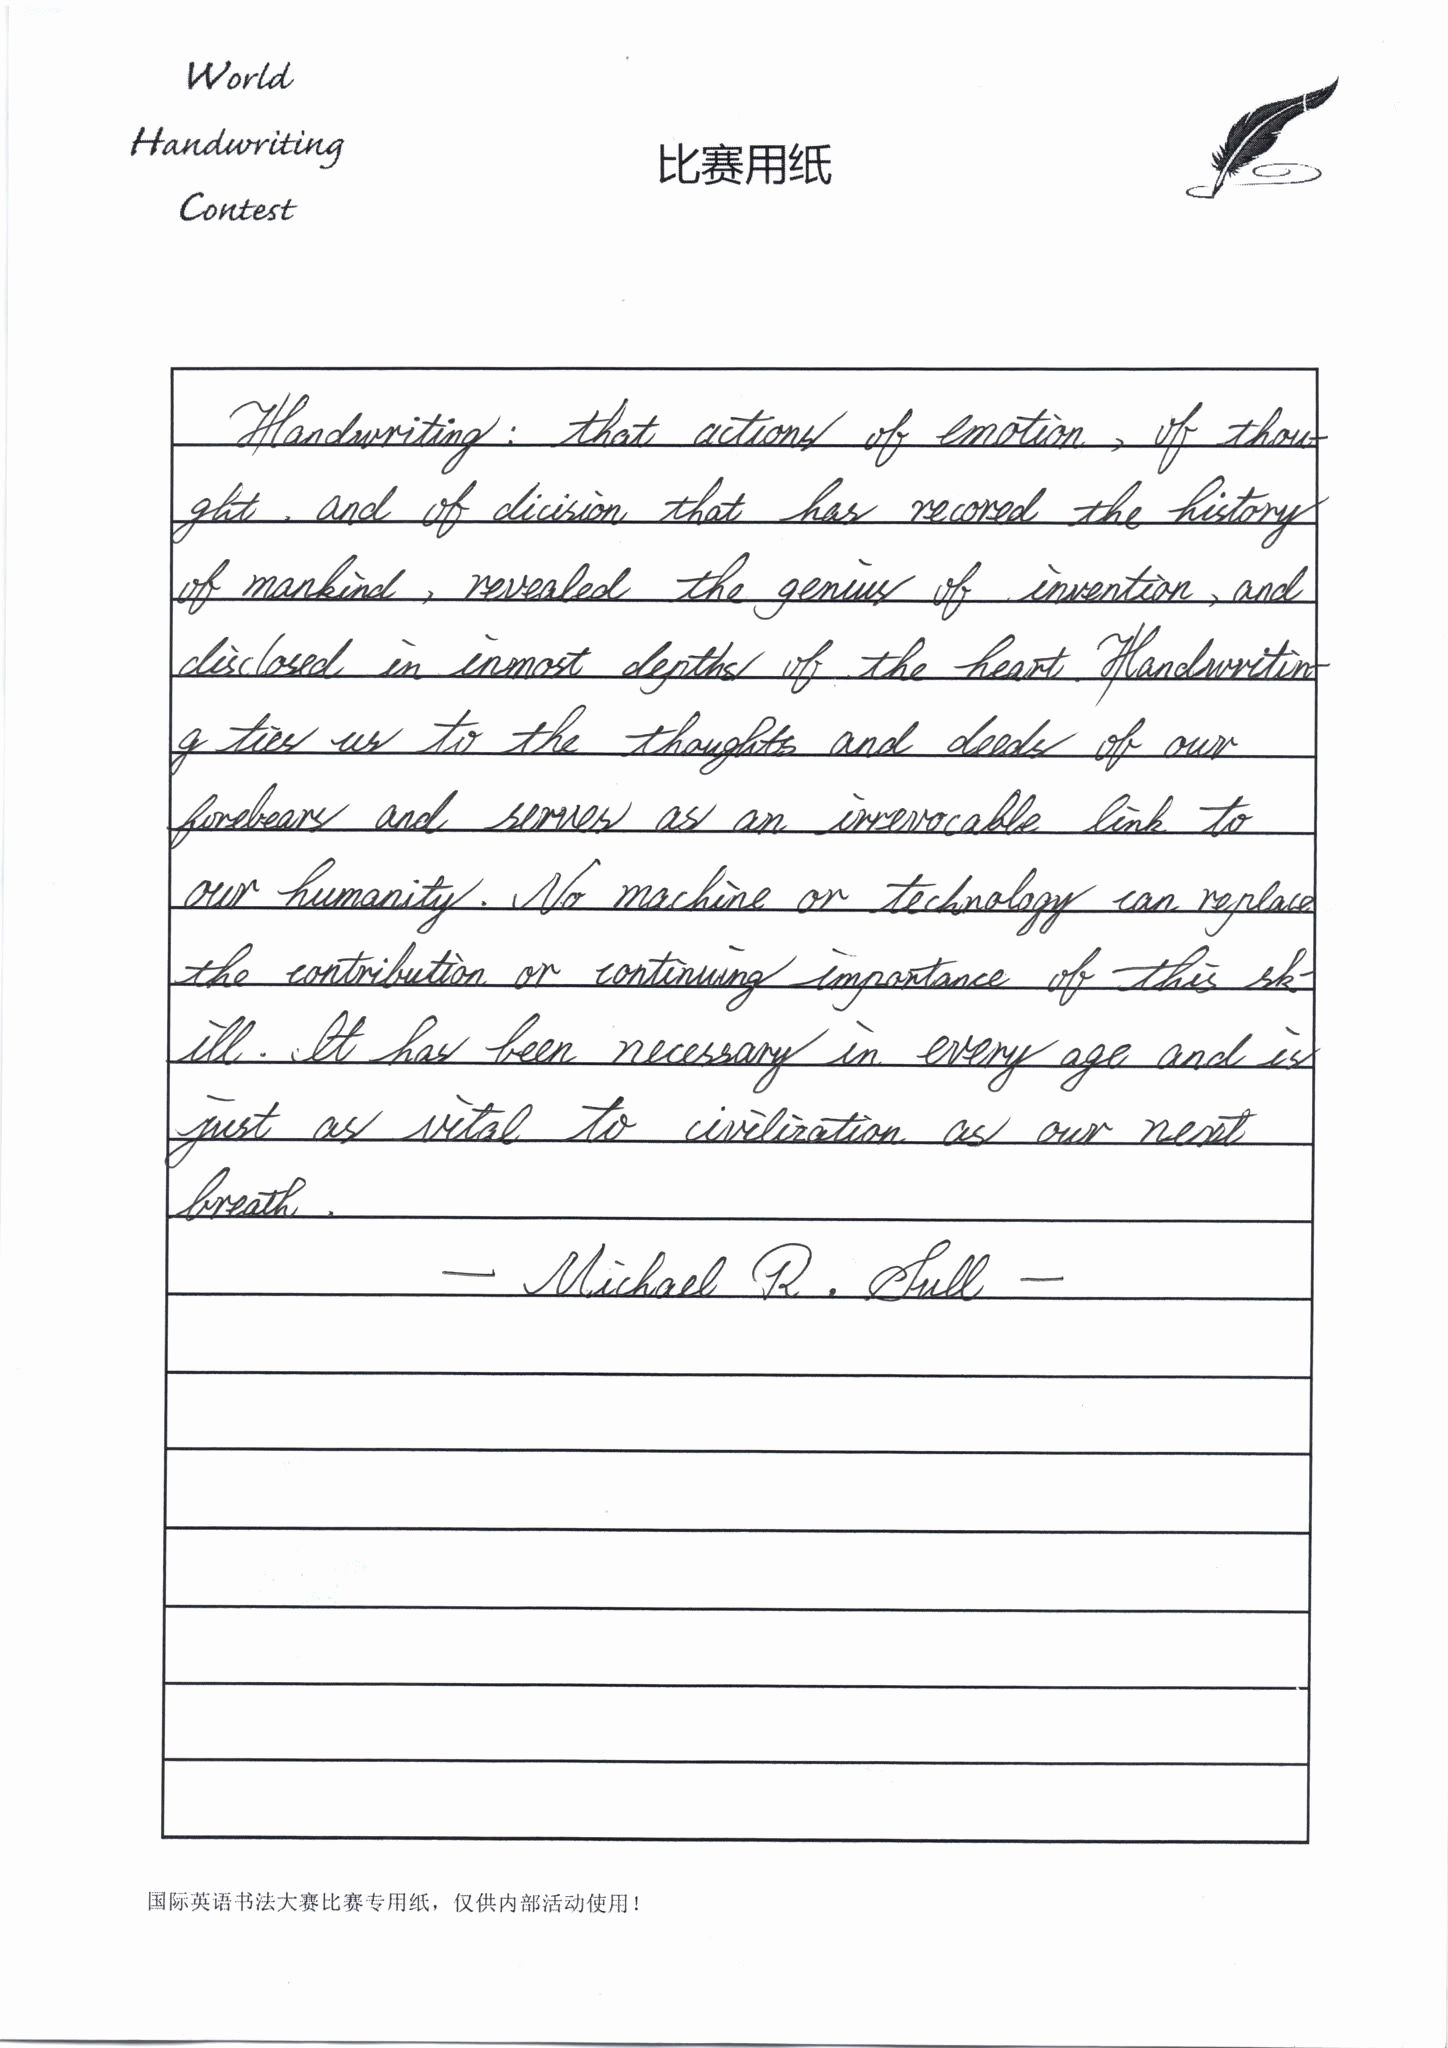 World
Handwriting
Contest
比赛用纸
Handwriting : that actions of emotion , of thou-
ght . and of dicision that has recored the history
of mankind , revealed the genius of invention , and
disclosed in inmost depths of the heart . Handwritin-
g ties us to the thoughts and deeds of our
forebears and serves as an irrevocable link to
our humanity . No machine or technology can replace
the contribution or continuing importance of this sk-
ill . It has been necessary in every age and is
just as vital to civilization as our next
breath .
— Michael R . Sull —
国际英语书法大赛比赛专用纸，仅供内部活动使用！